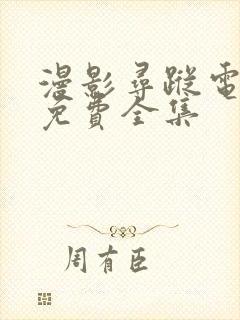 漫影尋蹤電
免費全集
周有臣